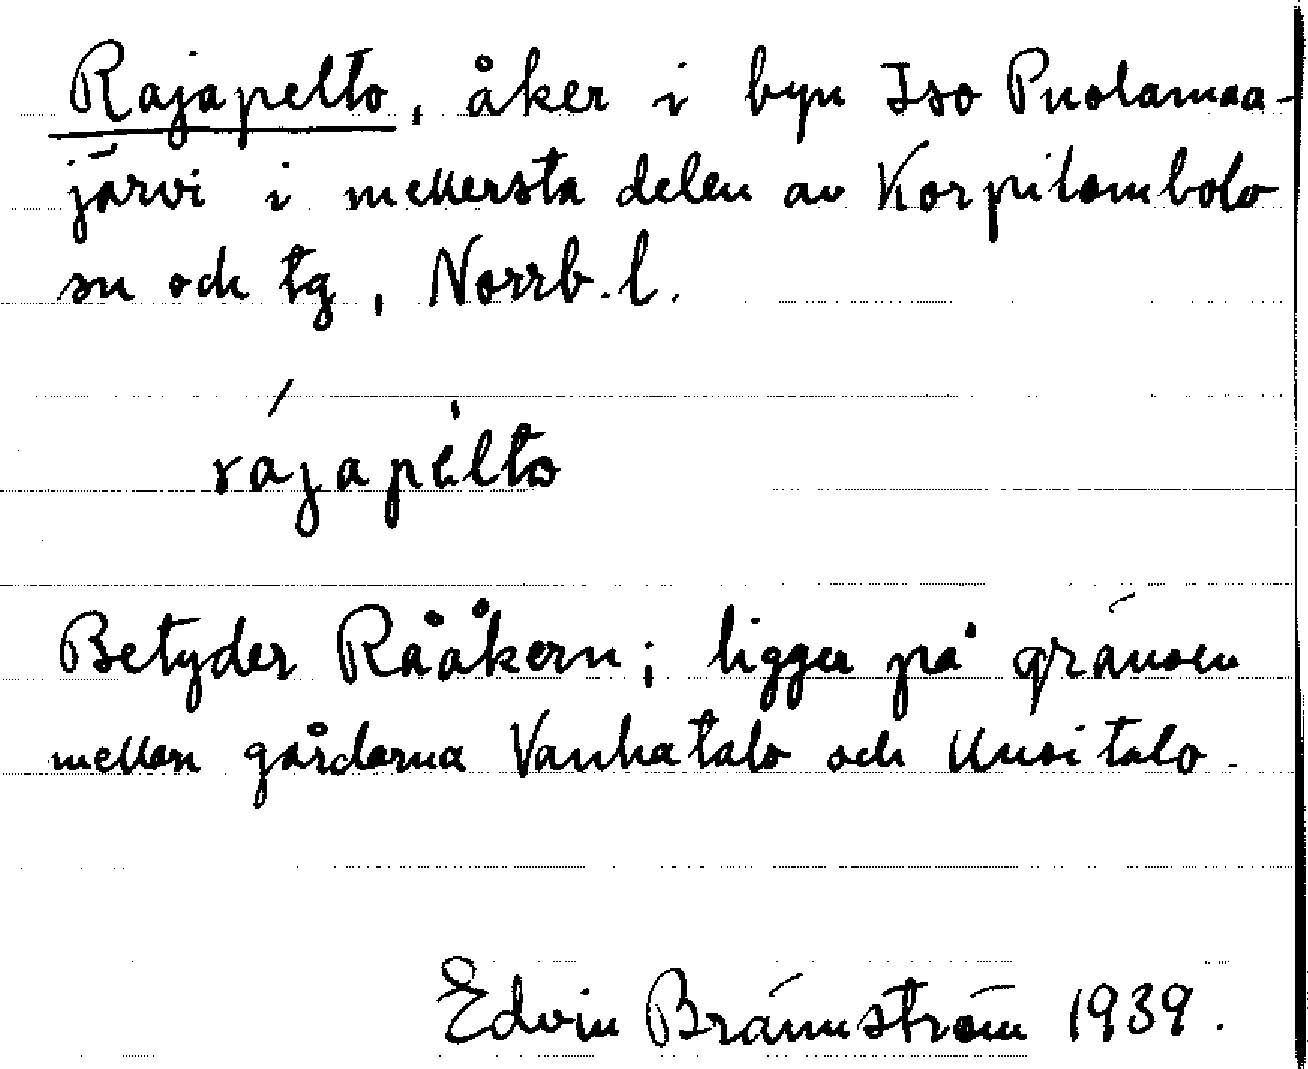 Rajapelto, åker i byn Iso Puolamaa-
järvi i mellersta delen av Korpilombolo
sn och tg, Norrb. l.
rájapèlto
Betyder Rååkern; ligger på gränsen
mellan gårdarna Vanhatalo och Uusitalo.
Edvin Brännström 1939.